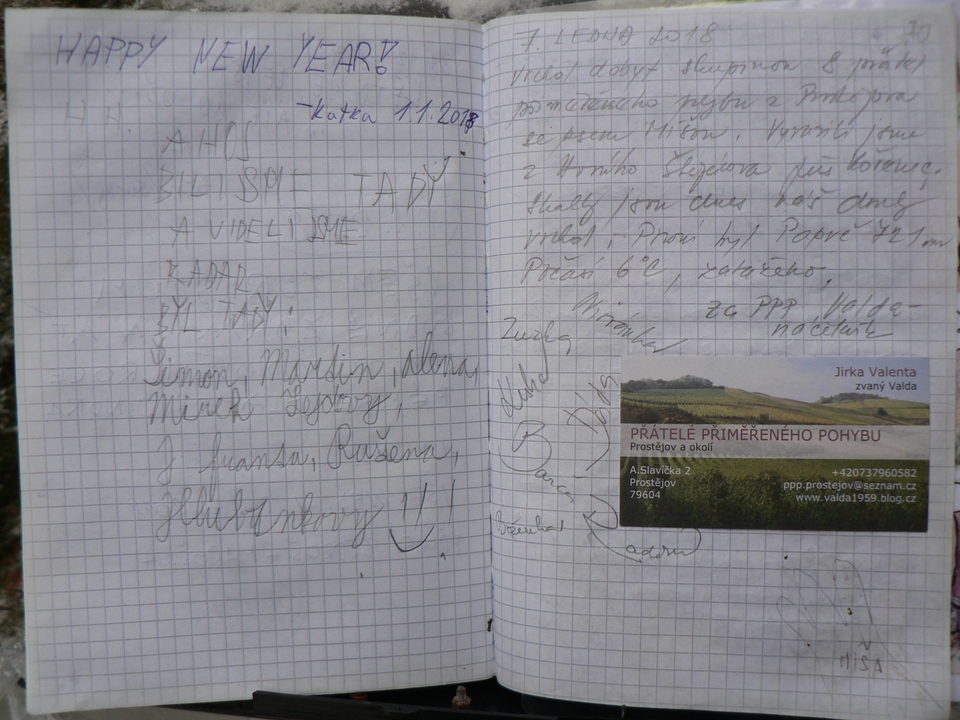 HAPPY NEW YEAR!
-Katka 1.1.2018
H.H.
AHOJ
BILI SME TADY
A VIDELI JSME
RADAR
BYL TADY:
Šimon, Martin, Alena,
Mirek
Franta, Růžena,
!!!
70
7. LEDNA 2018
Vrchol dobyt skupinou 8 přátel
přiměřeného pohybu z Prostějova
se psem Míšou. Vyrazili jsme
z Horního Štěpánova přes Kořenec.
Skalky jsou dnes náš druhý
vrchol. První byl Paprč 721 m
Počasí 6°C, zataženo,
za PPP Valda-
náčelník
Zuzka
Barča
Jirka Valenta
zvaný Valda
PŘÁTELÉ PŘIMĚŘENÉHO POHYBU
Prostějov a okolí
A.Slavíčka 2
Prostějov
79604
+420737960582
ppp.prostejov@seznam.cz
www.valda1959.blog.cz
MÍŠA